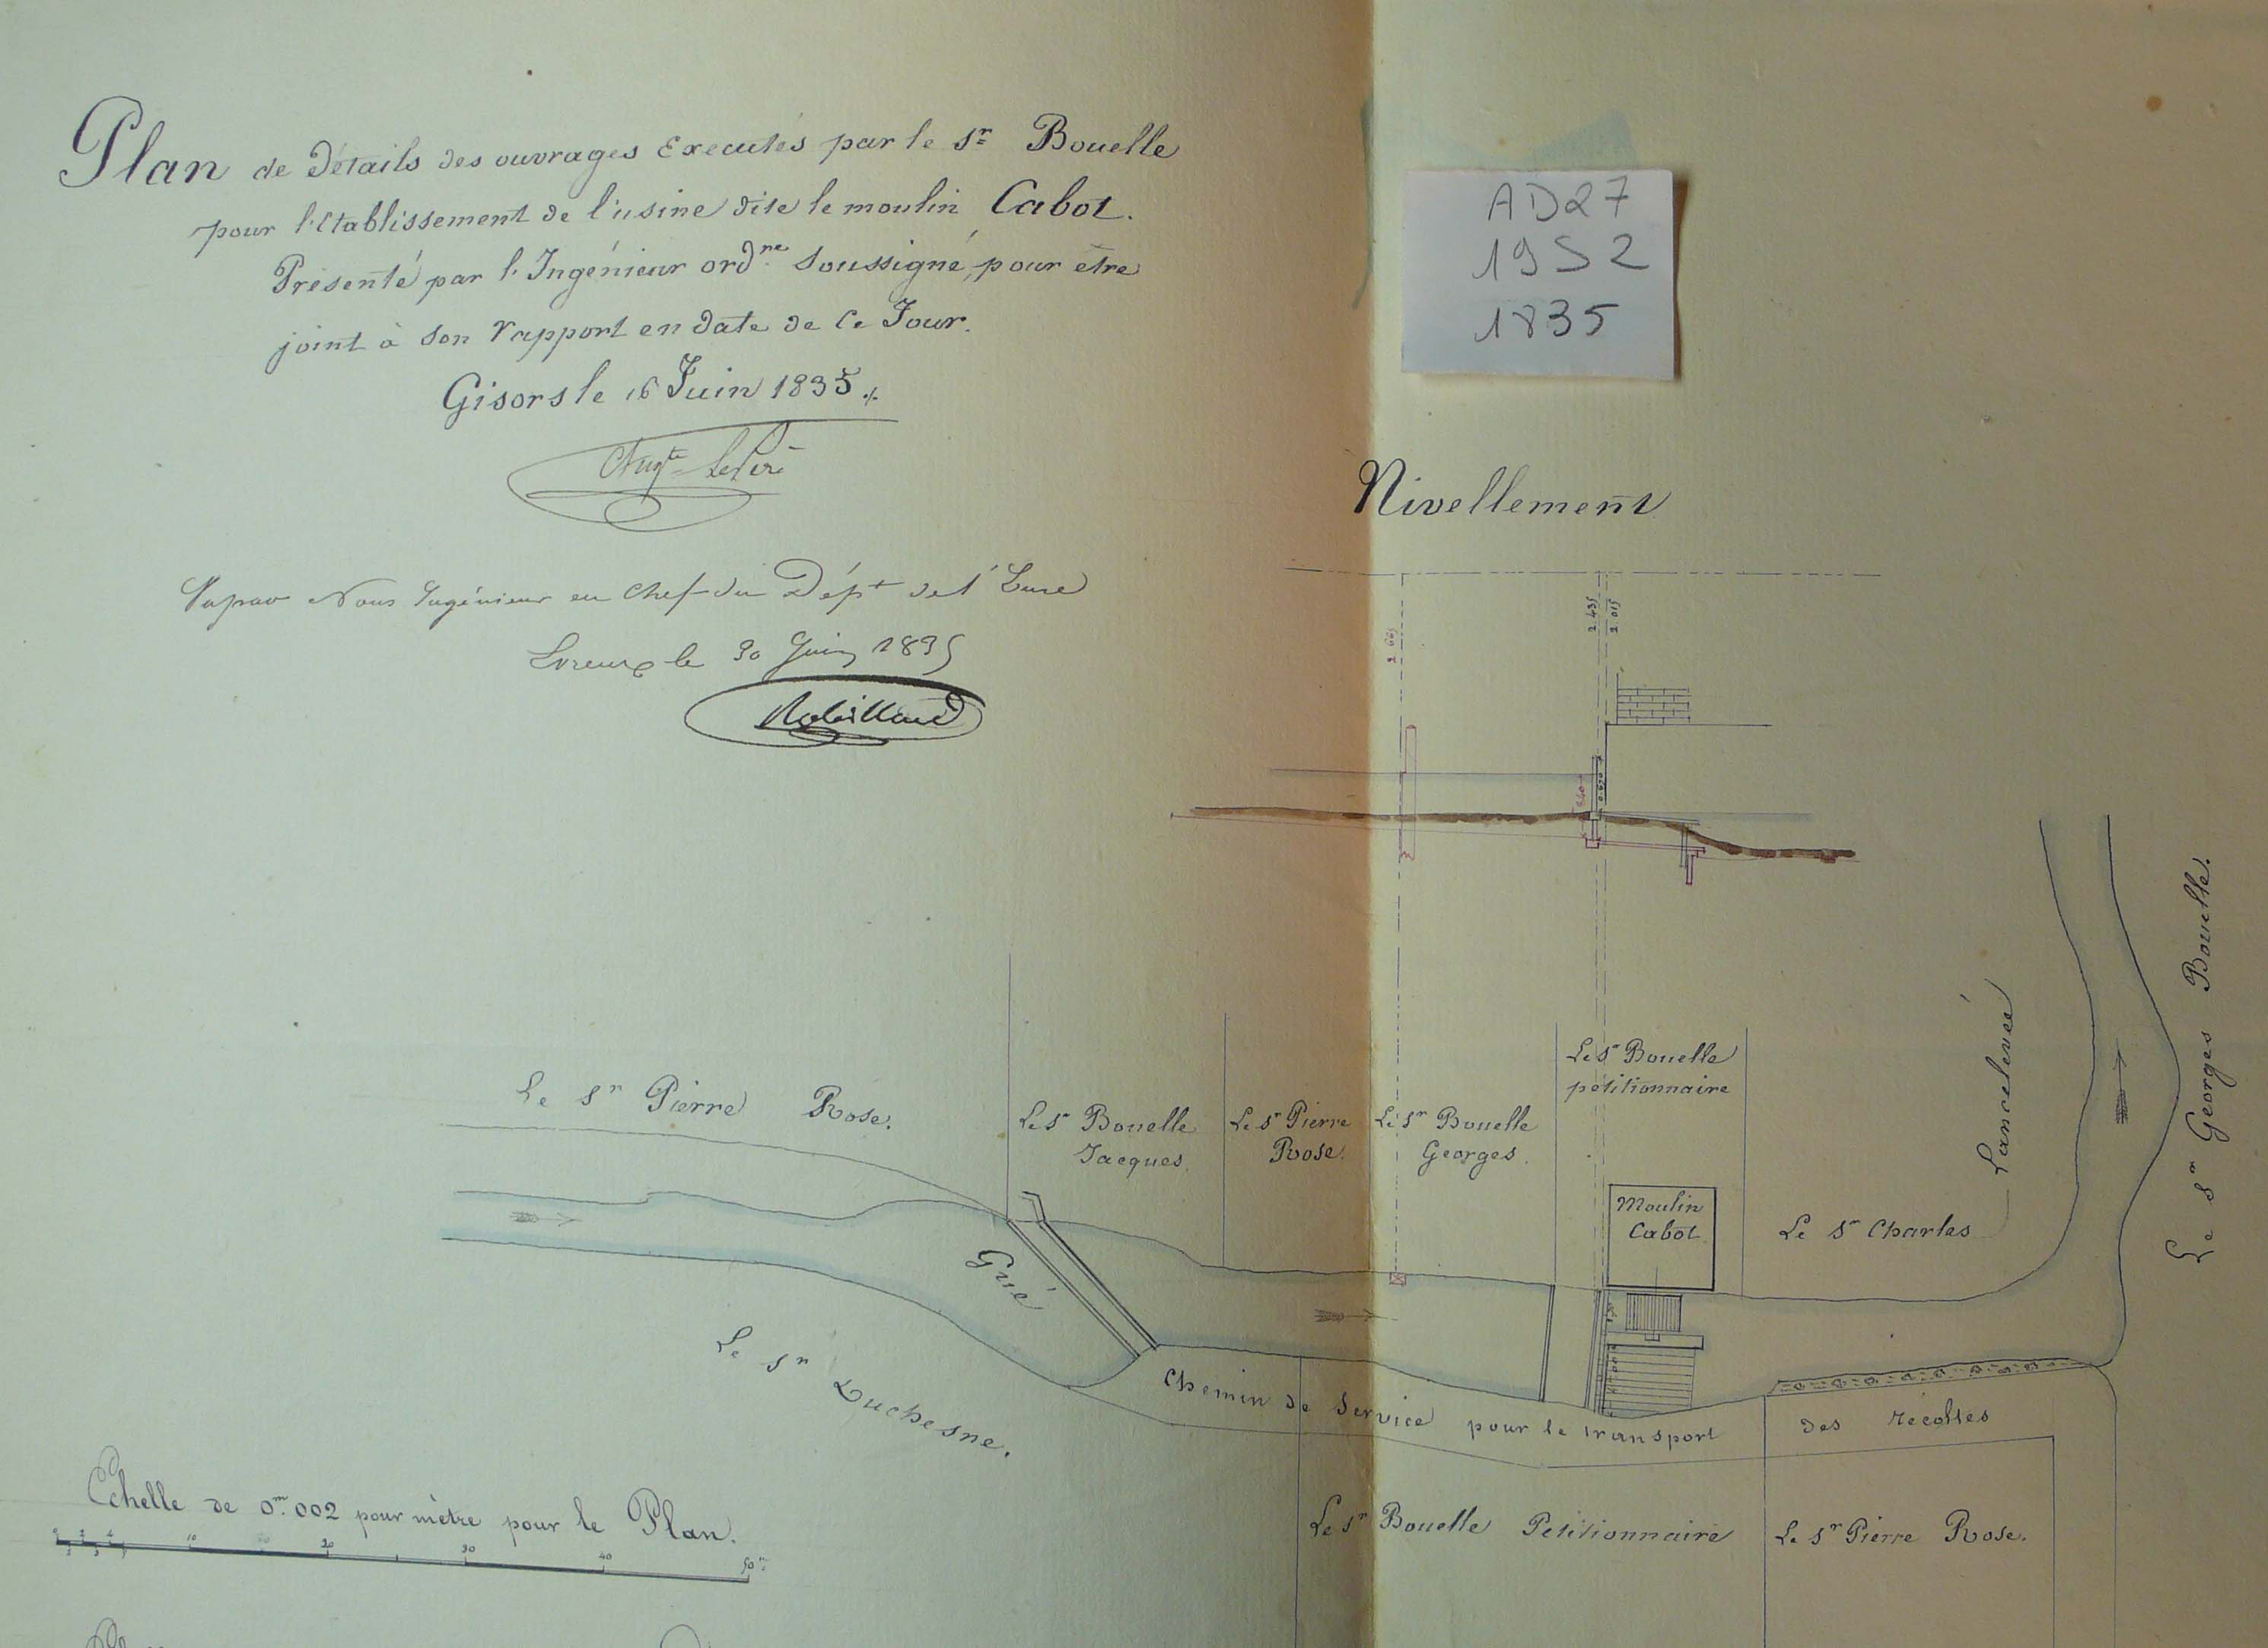 Plan de Détails des ouvrages Executés par le Sr Bouelle
pour l'Etablissement de l'usine dite le moulin Cabot.
Présenté par l'Ingénieur ordre soussigné, pour être
joint à son rapport en date de ce Jour.
Gisors le 16 Juin 1835
Augte
Vu par Nous Ingénieur en Chef du Dépt de l'Eure
Evreux le 30 Juin 1835
Robillard
AD27
19S2
1835
Nivellement
2.435
2.015
Le Sr Pierre Rose.
Le Sr Bouelle
Jacques.
Le Sr Pierre
Rose.
Le Sr Bouelle
Georges.
Le Sr Bouelle
pétitionnaire
Moulin
Cabot
Le Sr Charles
Lancelevée
Le Sr Georges Bouelle.
Gué
Le Sr Duchesne.
Chemin de Service pour le transport des récoltes
Le Sr Bouelle Petitionnaire
Le Sr Pierre Rose.
Echelle de 0m.002 pour mètre pour le Plan.
10 20 30 40 50m